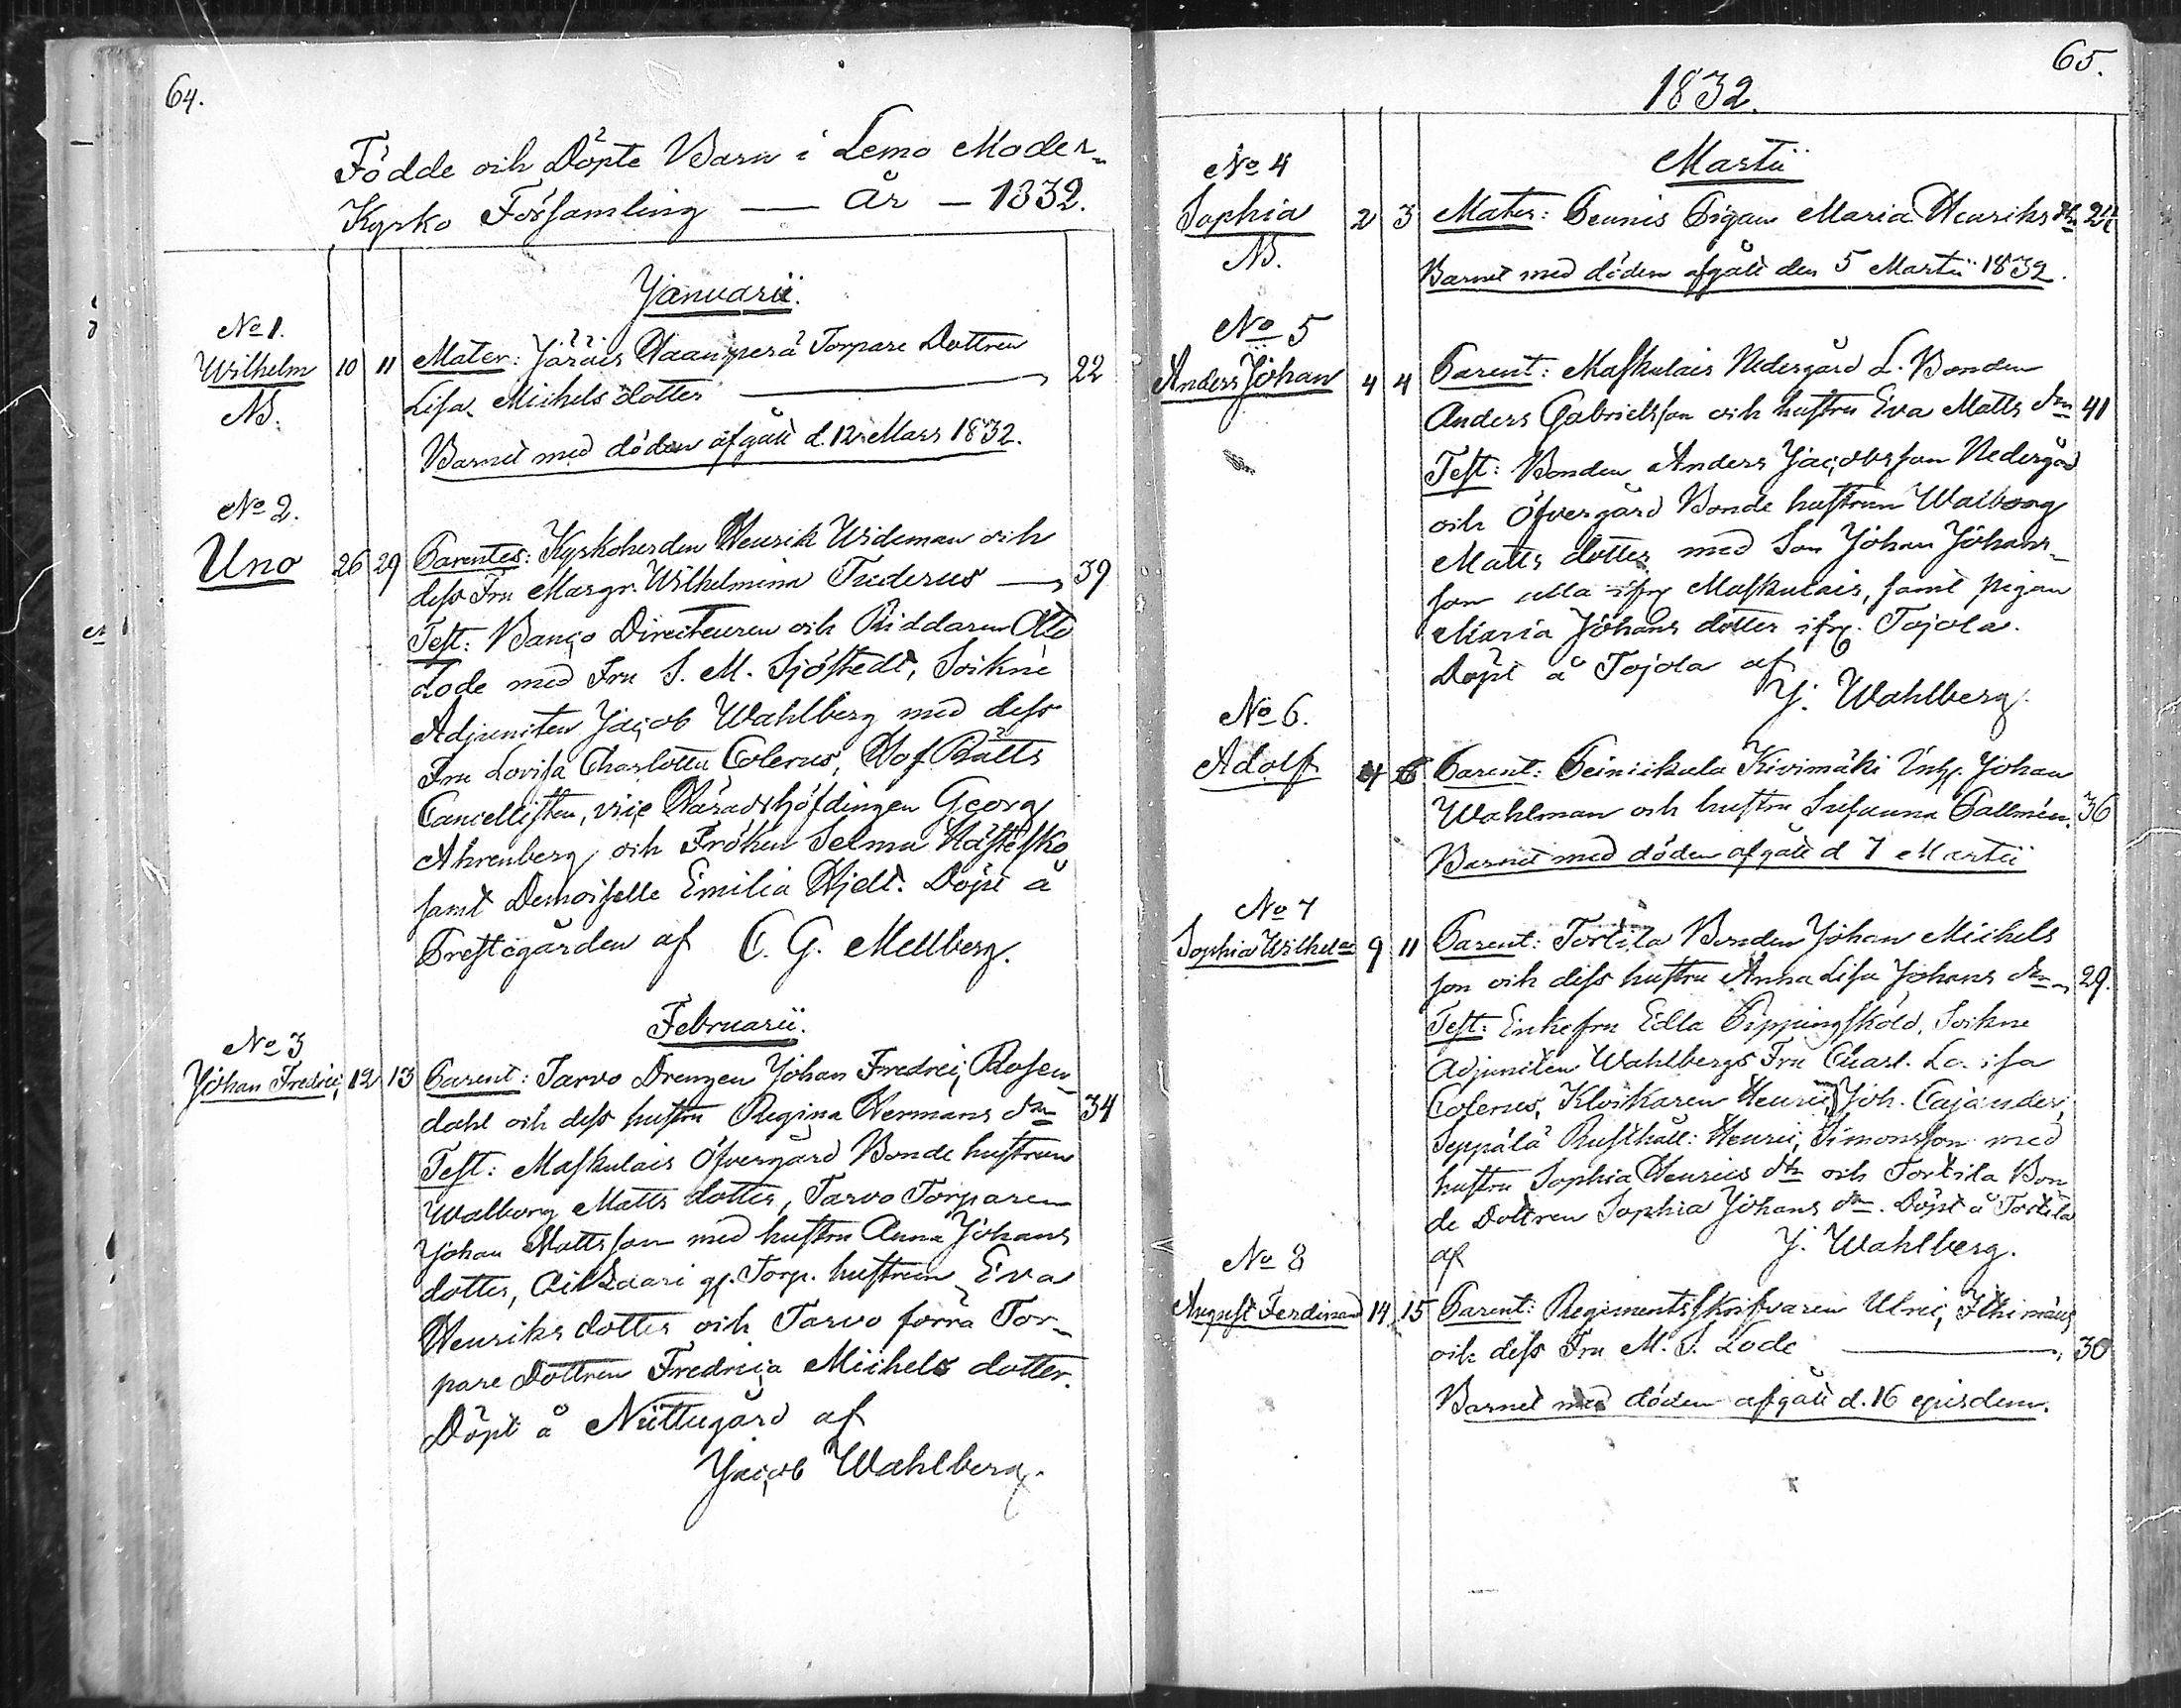 64.
Födde och Döpte Barn i Lemo Moder-
Kyrko Församling — År — 1832.
Januarii.
No 1.
Wilhelm 10 11 Mater: Järäis Haanperä Torpare Dottren
NB. Lisa Michels dotter — 22
Barnet med döden afgått d. 12 Mars 1832.
No 2.
Uno 26 29 Parentes: Kyrkoherden Henrik Wideman och
dess Fru Margr. Wilhelmina Tuderus — 39
Test: Banco Directeuren och Riddaren Otto
Lode med Fru S. M. Sjöstedt, Sockne
Adjuncten Jacob Wahlberg med dess
Fru Lovisa Charlotta Colerus, Hof Rätts
Cancellisten, vice Häradshöfdingen Georg
Ahrenberg och Fröken Selma Hästesko
samt Demoiselle Emilia Hjelt. Döpt å
Prestegården af C. G. Mellberg.
Februarii.
No 3
Johan Fredric 12 13 Parent: Tarvo Drengen Johan Fredric Rosen-
dahl och dess hustru Regina Hermans dr 34
Test: Maskulais Öfvergård Bonde hustrun
Walborg Matts dotter, Tarvo Torparen
Johan Mattsson med hustru Anna Johans
dotter, Torp. hustrun Eva
Henriks dotter och Tarvo förra Tor-
pare Dottren Fredrica Michels dotter.
Döpt å Niittugård af
Jacob Wahlberg.
65.
1832.
Martii
No 4
Sophia 2 3 Mater: Pennis Pigan Maria Henriks dr 24
NB.
Barnet med döden afgått den 5 Martii 1832.
No 5
Anders Johan 4 4 Parent: Maskulais Nedergård L. Bonden
Anders Gabrielsson och hustru Eva Matts dr 41
Test: Bonden Anders Jacobsson Nedergård
och Öfvergård Bonde hustrun Walborg
Matts dotter med Son Johan Johans-
son alla ifr. Maskulais, samt pigan
Maria Johans dotter ifr. Tojola.
Döpt å Tojola af
J. Wahlberg.
No 6.
Adolf 4 6 Parent: Peinikala Kivimäki Inh. Johan
Wahlman och hustru Susanna Pallmén. 36
Barnet med döden afgått d 7 Martii
No 7
Sophia Wilhelma 9 11 Parent: Tortila Bonden Johan Michels
son och dess hustru Anna Lisa Johans dr 29.
Test: Enkefru Edla Pippingsköld, Sockne
Adjuncten Wahlbergs Fru Charl. Lovisa
Colerus, Klockaren Henric Joh. Cajander,
Seppälä Rusthåll: Henric Simonsson med
hustru Sophia Henrics dr och Tortila Bon
de Dottren Sophia Johans dr. Döpt å Tortila
af J. Wahlberg.
No 8
August Ferdinand 14 15 Parent: Regimentsskrifvaren Ulric Ithimæus
och dess Fru M. S. Lode — 30
Barnet med döden afgått d. 16 ejusdem.